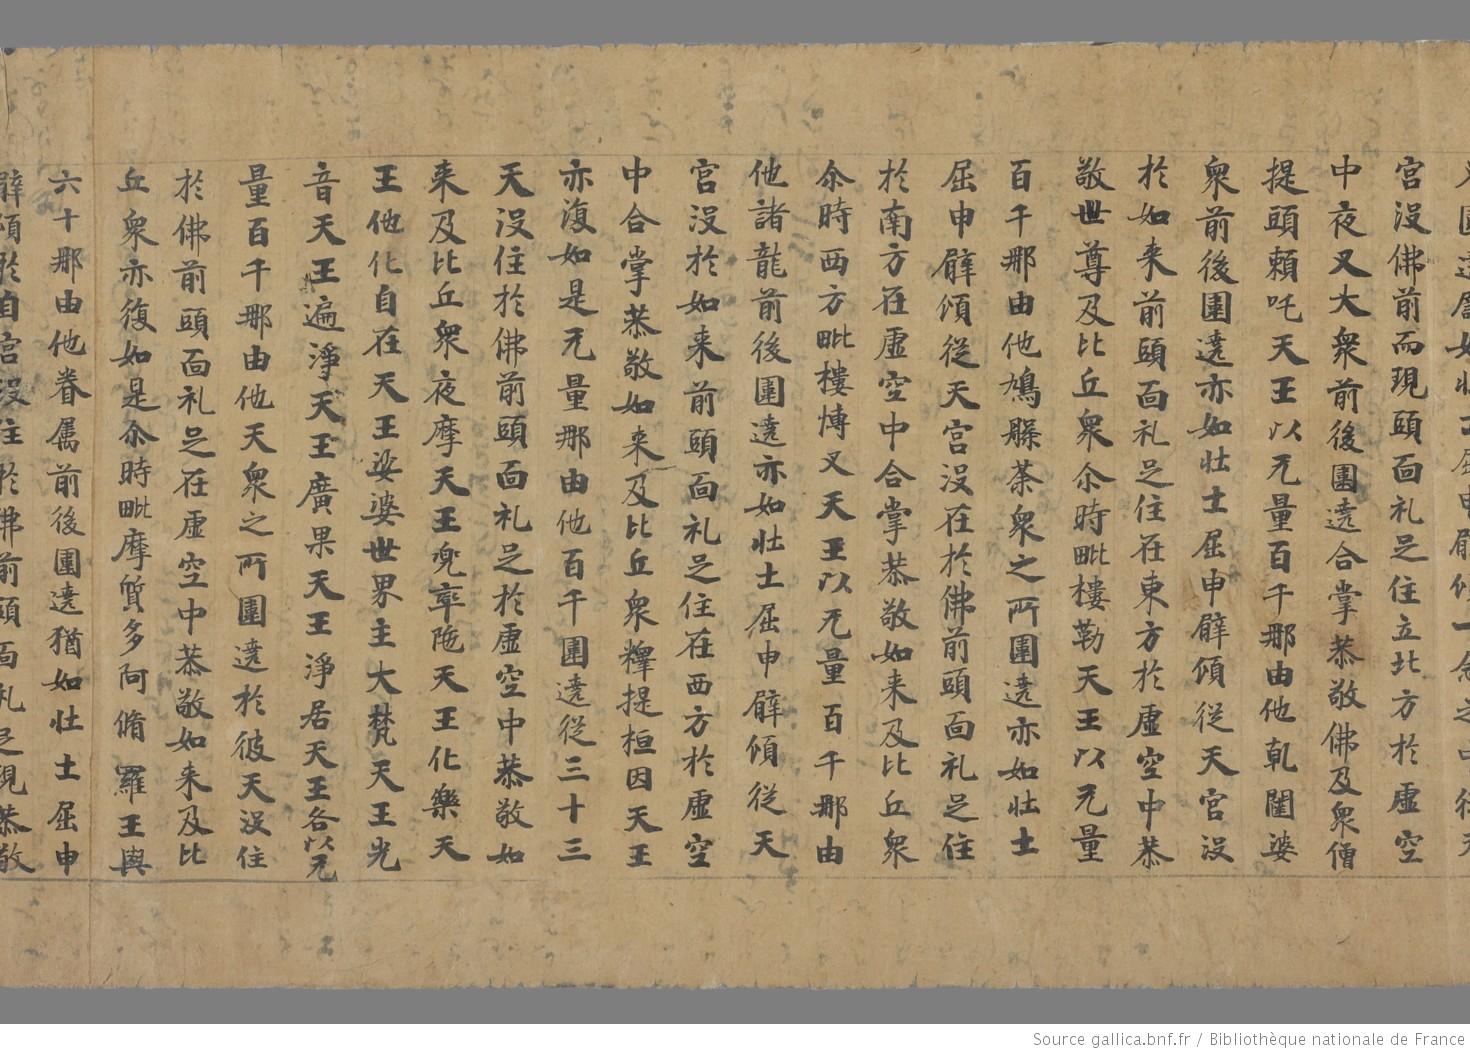 宮没佛前而現頭面礼足住立北方於虛空
中夜叉大衆前後圍遶合掌恭敬佛及衆僧
提頭賴吒天王以无量百千那由他乹闥婆
衆前後圍遶亦如壮士屈申臂傾從天宮没
於如来前頭面礼足住在東方於虛空中恭
敬世尊及比丘衆尒時毗樓勒天王以无量
百千那由他鳩槃荼衆之所圍遶亦如壮士
屈申臂傾從天宮没在於佛前頭面礼足住
於南方在虛空中合掌恭敬如来及比丘衆
尒時西方毗樓愽叉天王以无量百千那由
他諸龍前後圍遶亦如壮士屈申臂傾從天
宮没於如来前頭面礼足住在西方於虛空
中合掌恭敬如来及比丘衆釋提桓因天王
亦復如是无量那由他百千圍遶從三十三
天没住於佛前頭面礼足於虛空中恭敬如
来及比丘衆夜摩天王兜率陁天王化樂天
王他化自在天王娑婆世界主大梵天王光
音天王遍淨天王廣果天王淨居天王各以无
量百千那由他天衆之所圍遶於彼天没住
於佛前頭面礼足在虛空中恭敬如来及比
丘衆亦復如是尒時毗摩質多阿脩羅王與
六十那由他眷属前後圍遶猶如壮士屈申
臂傾於自宮没住於佛前頭面礼足現恭敬
Source gallica.bnf.fr / Bibliothèque nationale de France